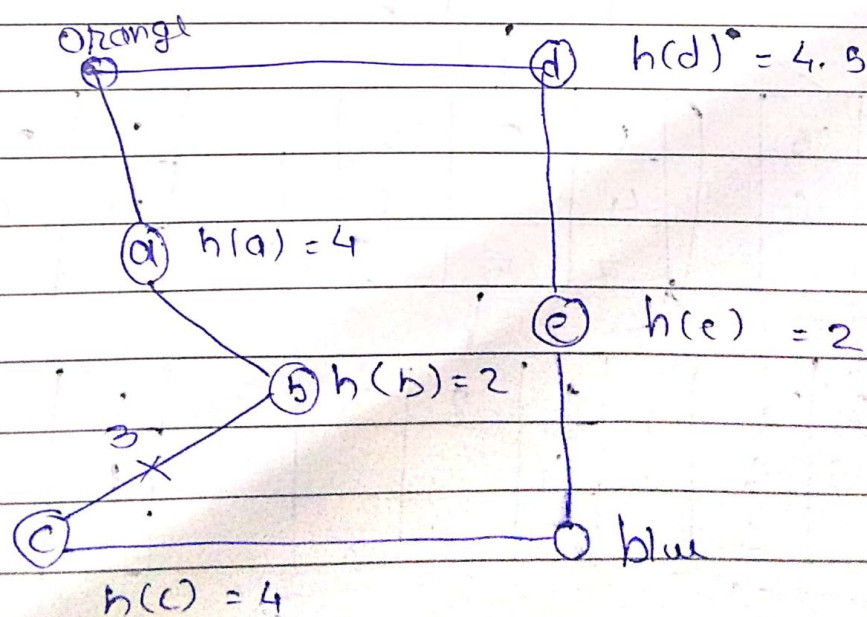 orange
d h(d) = 4.5
a h(a) = 4
e h(e) = 2
b h(b) = 2
3
c
blue
h(c) = 4